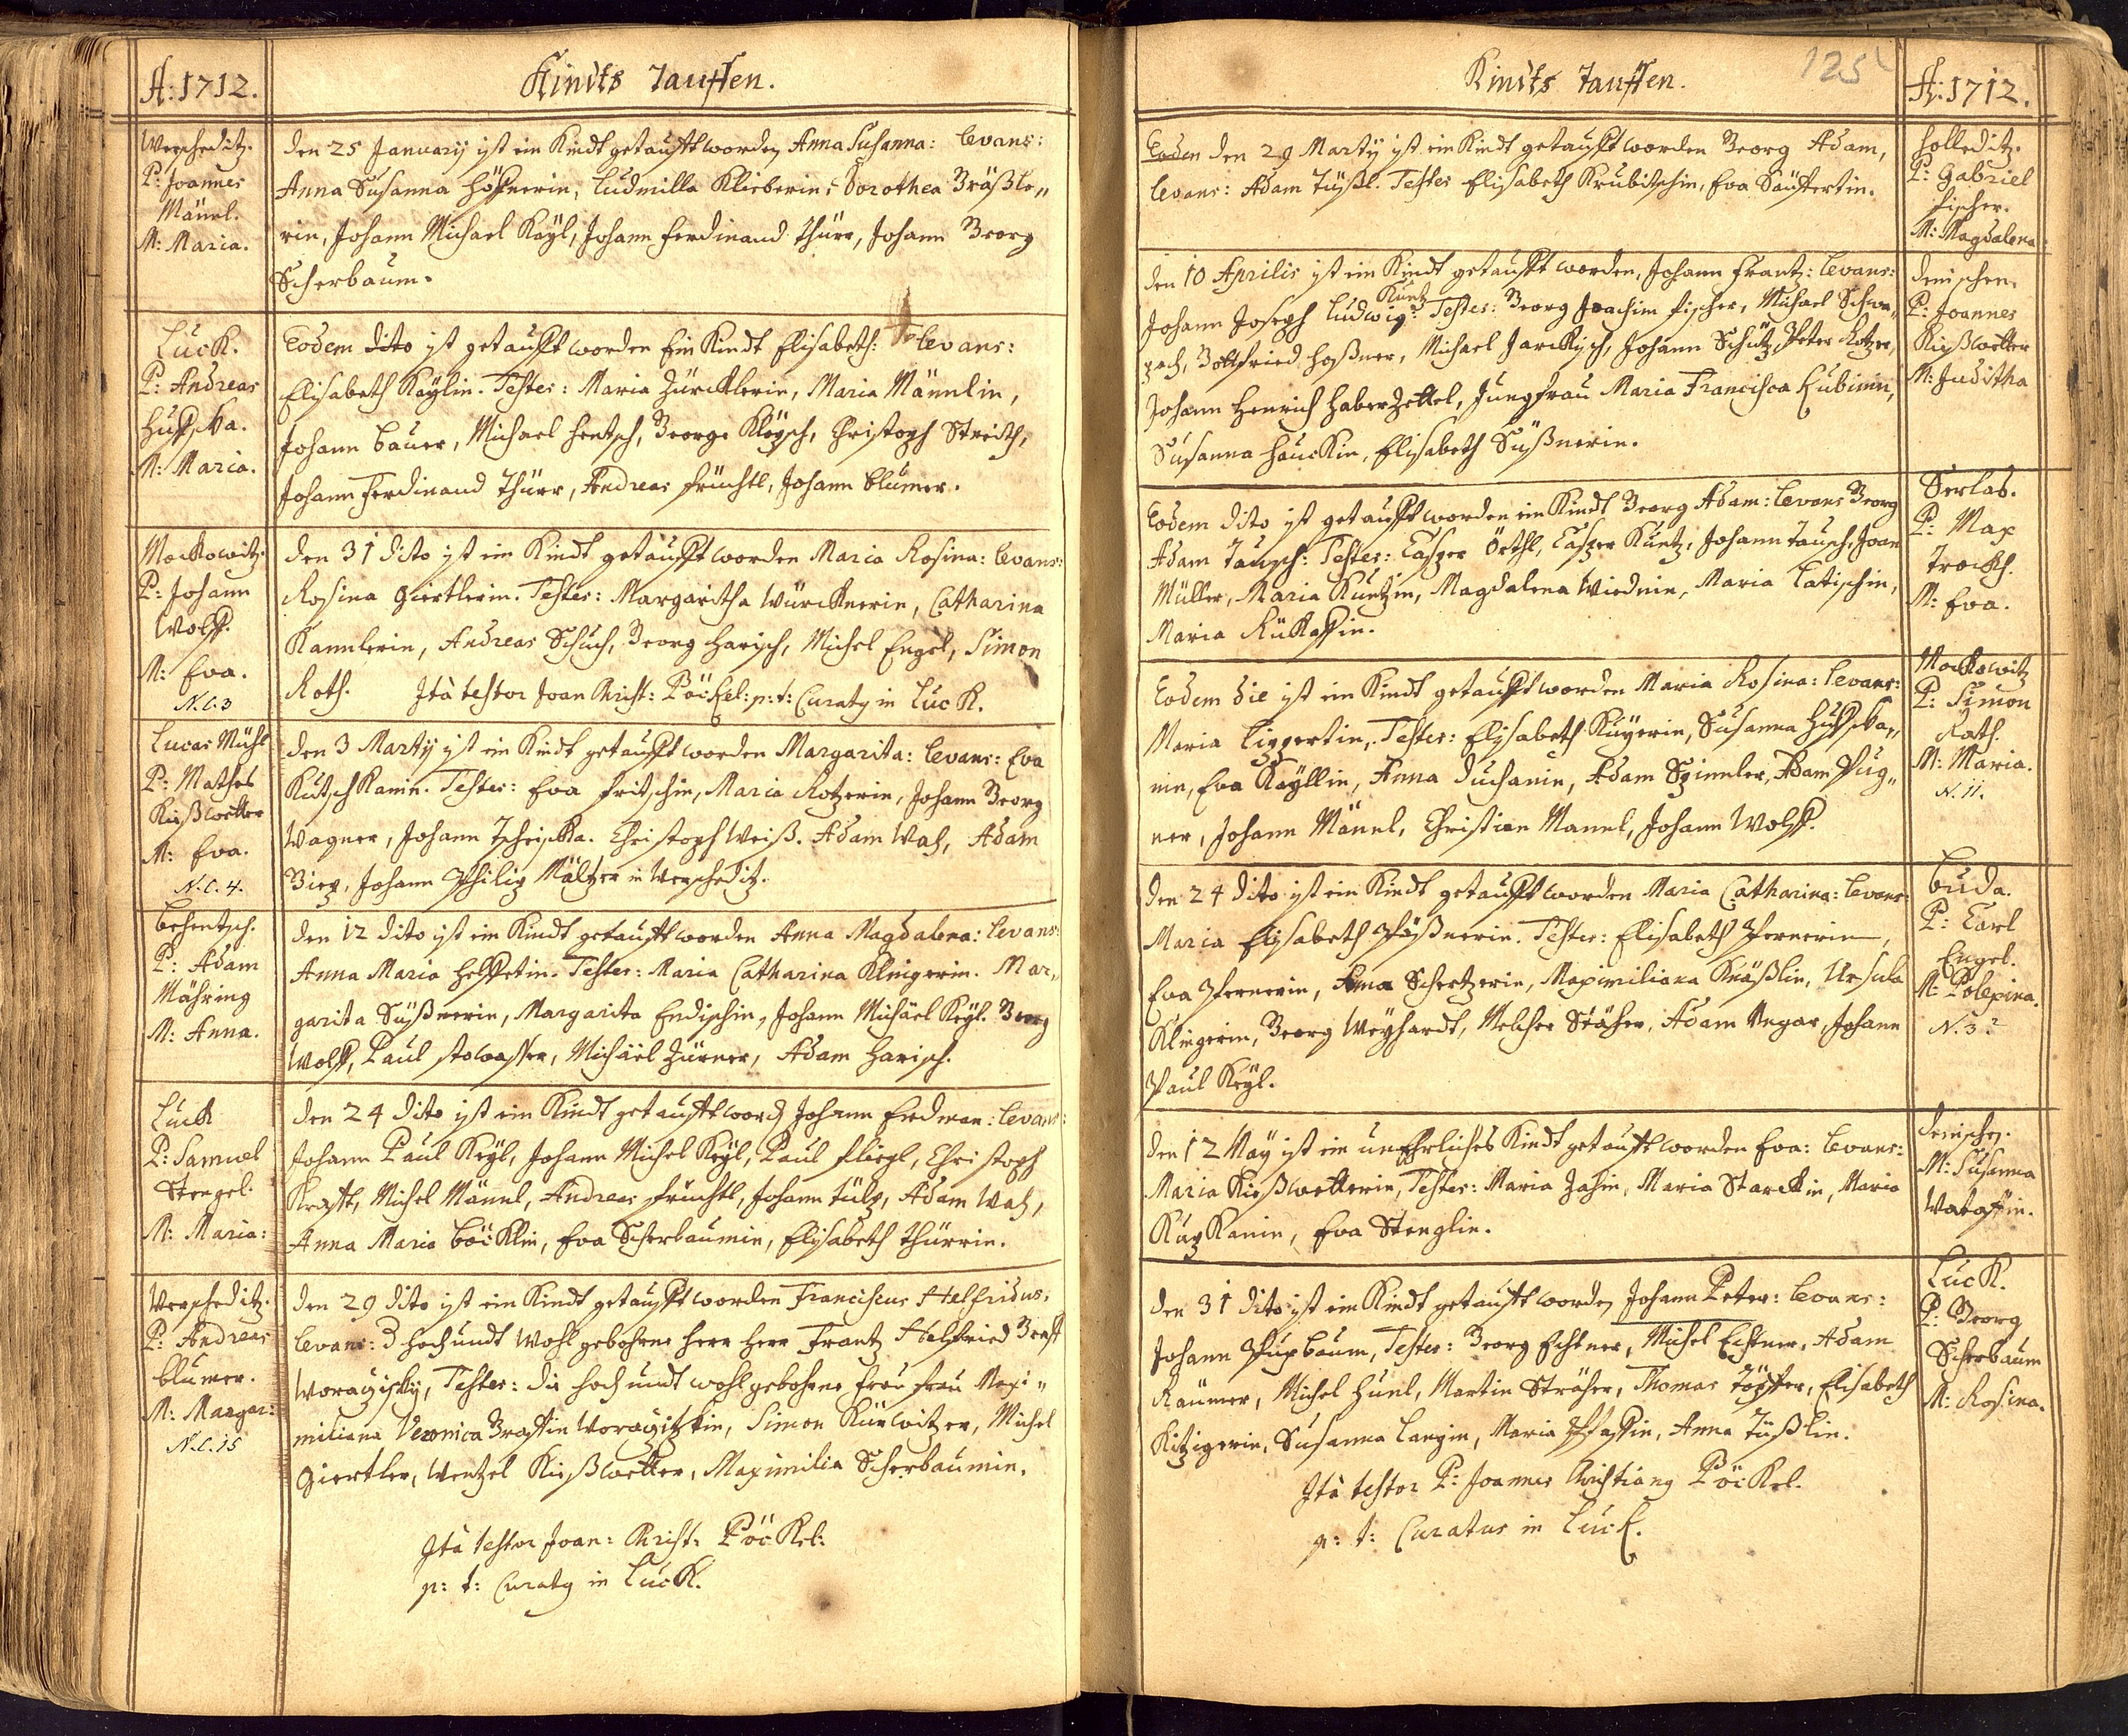 A: 1712.
Kindts Tauffen.
Werscheditz.
P: Joannes
Männl.
M: Maria.
den 25 Januarij ist ein Kindt getaufft worden Anna Susanna: Levans:
Anna Susanna Höffnerin, Ludmilla Klieberin, Dorothea Gräßle„
rin, Johann Michael Käyl, Johann Ferdinand Thürr, Johann Georg
Scherbaum.
Luck.
P: Andreas
Huffska.
M: Maria.
Eodem dito ist getaufft worden Ein Kindt Elisabeth: Levans:
Elisabeth Käylin. Testes: Maria Zürcklerin, Maria Männlin,
Johann Bauer, Michael Hentsch, George Klöysch, Christoph Streith,
Johann Ferdinand Thürr, Andreas Früchtl, Johann Blumer.
Mockowitz.
P: Johann
Wolff.
M: Eva.
N.C. 3
den 31 dito ist ein Kindt getaufft worden Maria Rosina: Levans:
Rosina Giertlerin. Testes: Margaritha Würcknerin, Catharina
Kannlerin, Andreas Schuch, Georg Harisch, Michel Engel, Simon
Roth. Ità testor Joan Christ: Pöckel: p: t: Curatg in Luck.
Lucas Mühl
P: Mathes
Kießwetter
M: Eva.
N.C. 4.
den 3 Martij ist ein Kindt getaufft worden Margarita: Levans: Eva
Kutschkanin. Testes: Eva Fritschin, Maria Kotzerin, Johann Georg
Wagner, Johann Tschischka. Christoph Weiß. Adam Wach, Adam
Johann Philip Mältzer in Werscheditz.
Bohentsch.
P: Adam
Mähring
M: Anna.
den 12 dito ist ein Kindt getaufft worden Anna Magdalena: Levans:
Anna Maria Helffertin. Testes: Maria Catharina Klingerin. Mar„
garita Süßnerin, Margarita Endischin, Johann Michäel Keyl. Georg
Wolff, Paul Stowasser, Michäel Zürner, Adam Harisch.
Luck
P: Samuel
Stengel.
M: Maria:
den 24 dito ist ein Kindt getaufft word Johann Erdman: Levans:
Johann Paul Keyl, Johann Michel Keyl, Paul Fliegl, Christoph
Krafft, Michel Männl, Andreas Früchtl, Johann Tülp, Adam Wach,
Anna Maria Böcklin, Eva Scherbaumin, Elisabeth Thürrin.
Werscheditz.
P: Andreas
Blumer.
M: Margar:
N.C. 15
den 29 dito ist ein Kindt getaufft worden Franciscus Helfridus,
Levans: hoch undt Wohl gebohrne Herr Herr Frantz Helffried Graff
Woragisky, Testes: die hoch undt wohl gebohrne Frau Frau Maxi„
miliana Veronica Graffin Woragitzkin, Simon Kürwitzer, Michel
Giertler, Wentzel Kießwetter, Maximilia Scherbaumin.
Ità testor Joan: Christ: Pöckel:
p: t: Curatg in Luck.
Kindts Tauffen.
125
A: 1712.
Eodem den 29 Martij ist ein Kindt getaufft worden Georg Adam,
Levans: Adam Tüßl. Testes Elisabeth Krubitschin, Eva Säuffertin.
Holleditz.
P: Gabriel
Fischer.
M: Magdalena:
den 10 Aprilis ist ein Kindt getaufft worden, Johann Frantz: Levans:
Kuntz
Johann Joseph Ludwig: Testes: Georg Joachim Fischer, Michael Schwa„
Gottfried Hoßner, Michael Jarckisch, Johann Schütz, Peter Kotzer,
Johann Henrich Haberzettel, Jungfrau Maria Francisca Kubinin,
Susanna Hauckin, Elisabeth Süßnerin.
P: Joannes
Kießwetter
M: Juditha
Eodem dito ist getaufft worden ein Kindt Georg Adam: Levans Georg
Adam Tausch: Testes: Casper Örthl, Casper Kuntz, Johann Tausch, Joan
Müller, Maria Kuntzin, Magdalena Wiednin, Maria Latischin,
Maria
Serlas.
P: Max
Trockh.
M: Eva.
Eodem die ist ein Kindt getaufft worden Maria Rosina: Levans:
Maria Lippertin. Testes: Elisabeth Küyerin, Susanna Huffska„
nin, Eva Käyllin, Anna Duchanin, Adam Spinnler, Adam Pug„
ner, Johann Männl, Christian Mannl, Johann Wolff.
Mockowitz
P: Simon
Roth.
M: Maria.
N. 11.
den 24 dito ist ein Kindt getaufft worden Maria Catharina: Levans:
Maria Elisabeth Püßnerin. Testes: Elisabeth Pernerin,
Eva Pernerin, Anna Schertzerin, Maximiliana Knäßlin, Ursula
Klingerin, Georg Weyhardt, Melcher Stäher, Adam Ungar, Johann
Paul Keyl.
Buda.
P: Carl
Engel.
M: Polexina.
N. 3
den 12 Maÿ ist ein unEhrliches Kindt getaufft worden Eva: Levans:
Maria Kießwetterin, Testes: Maria Zahin, Maria Starckin, Maria
Kutzkanin, Eva Stenglin.
M: Susanna
Watoffin.
den 31 dito ist ein Kindt getaufft worden Johann Peter: Levans:
Johann Puxbaum, Testes: Georg Echtner, Michel Echtner, Adam
Raümer, Michel Hünl, Martin Sträher, Thomas Töpffer, Elisabeth
Kitzigerin, Susanna Langin, Maria Pfaffin, Anna Tüßlin.
Luck.
P: Georg
Scherbaum
M: Rosina.
Ità testor P: Joannes Christiang Pöckel.
p: t: Curatus in Luck.